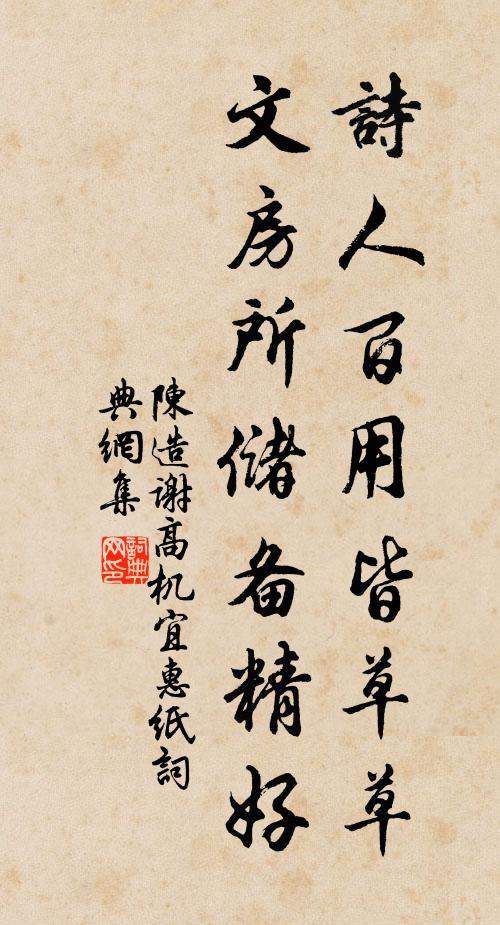 詩人百用皆草草
文房所儲备精好
陳造謝高机宜惠紙詞
典網集
詞典
网印